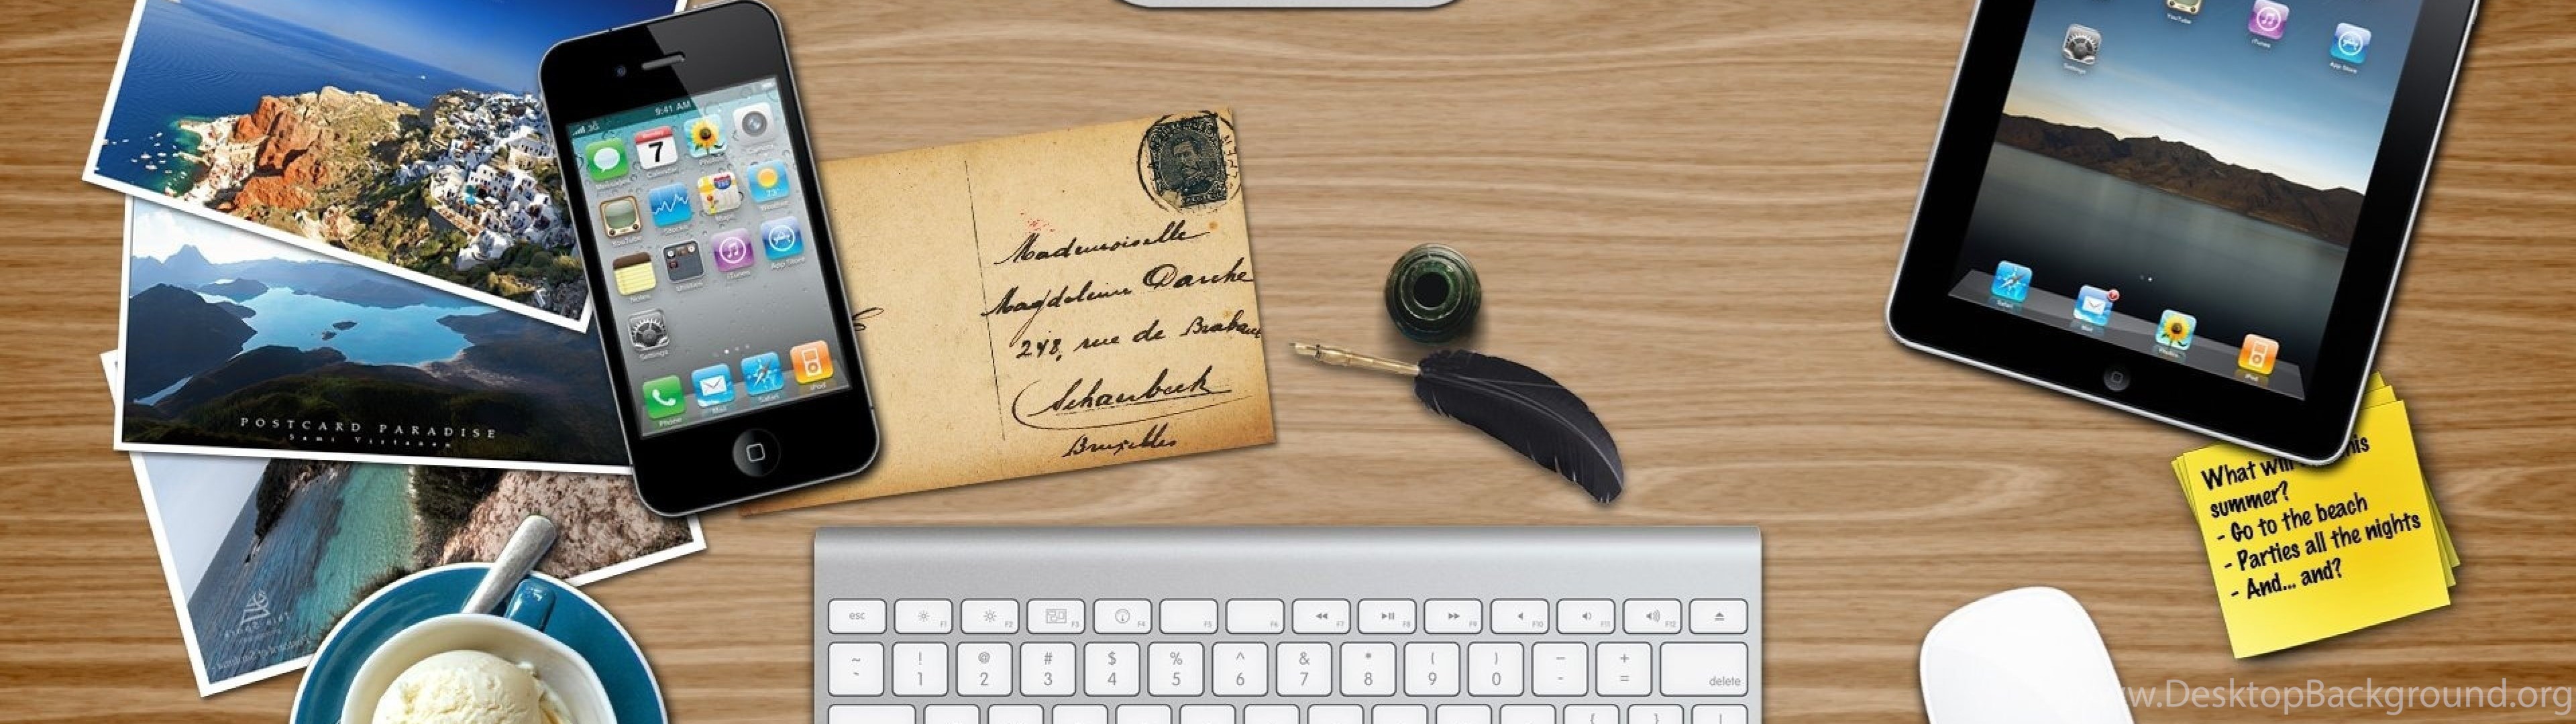 POSTCARD PARADISE
Sami Virtanen
9:41 AM
3G
Monday
7
Messages
Calendar
Photos
Camera
YouTube
Stocks
Maps
Weather
73°
Notes
Utilities
iTunes
App Store
Settings
Phone
Mail
Safari
iPod
Mademoiselle
Magdeleine Darche
248, rue de Braban
Schaerbeek
Bruxelles
YouTube
iTunes
App Store
Settings
Safari
Mail
Photos
iPod
What will this
summer?
- Go to the beach
- Parties all the nights
- And... and?
esc F1 F2 F3 F4 F5 F6 F7 F8 F9 F10 F11 F12
~ ! @ # $ % ^ & * ( ) – +
` 1 2 3 4 5 6 7 8 9 0 - = delete
{ } |
www.DesktopBackground.org